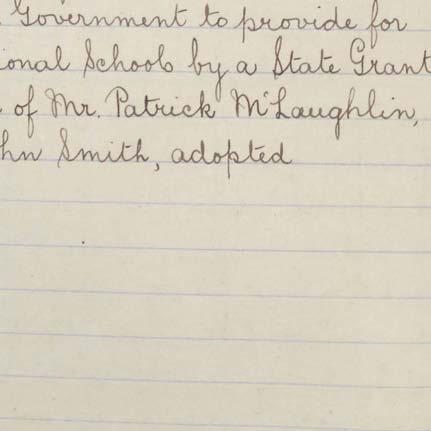 Government to provide for
ional Schools by a State Grant
of Mr. Patrick McLaughlin,
hn Smith, adopted